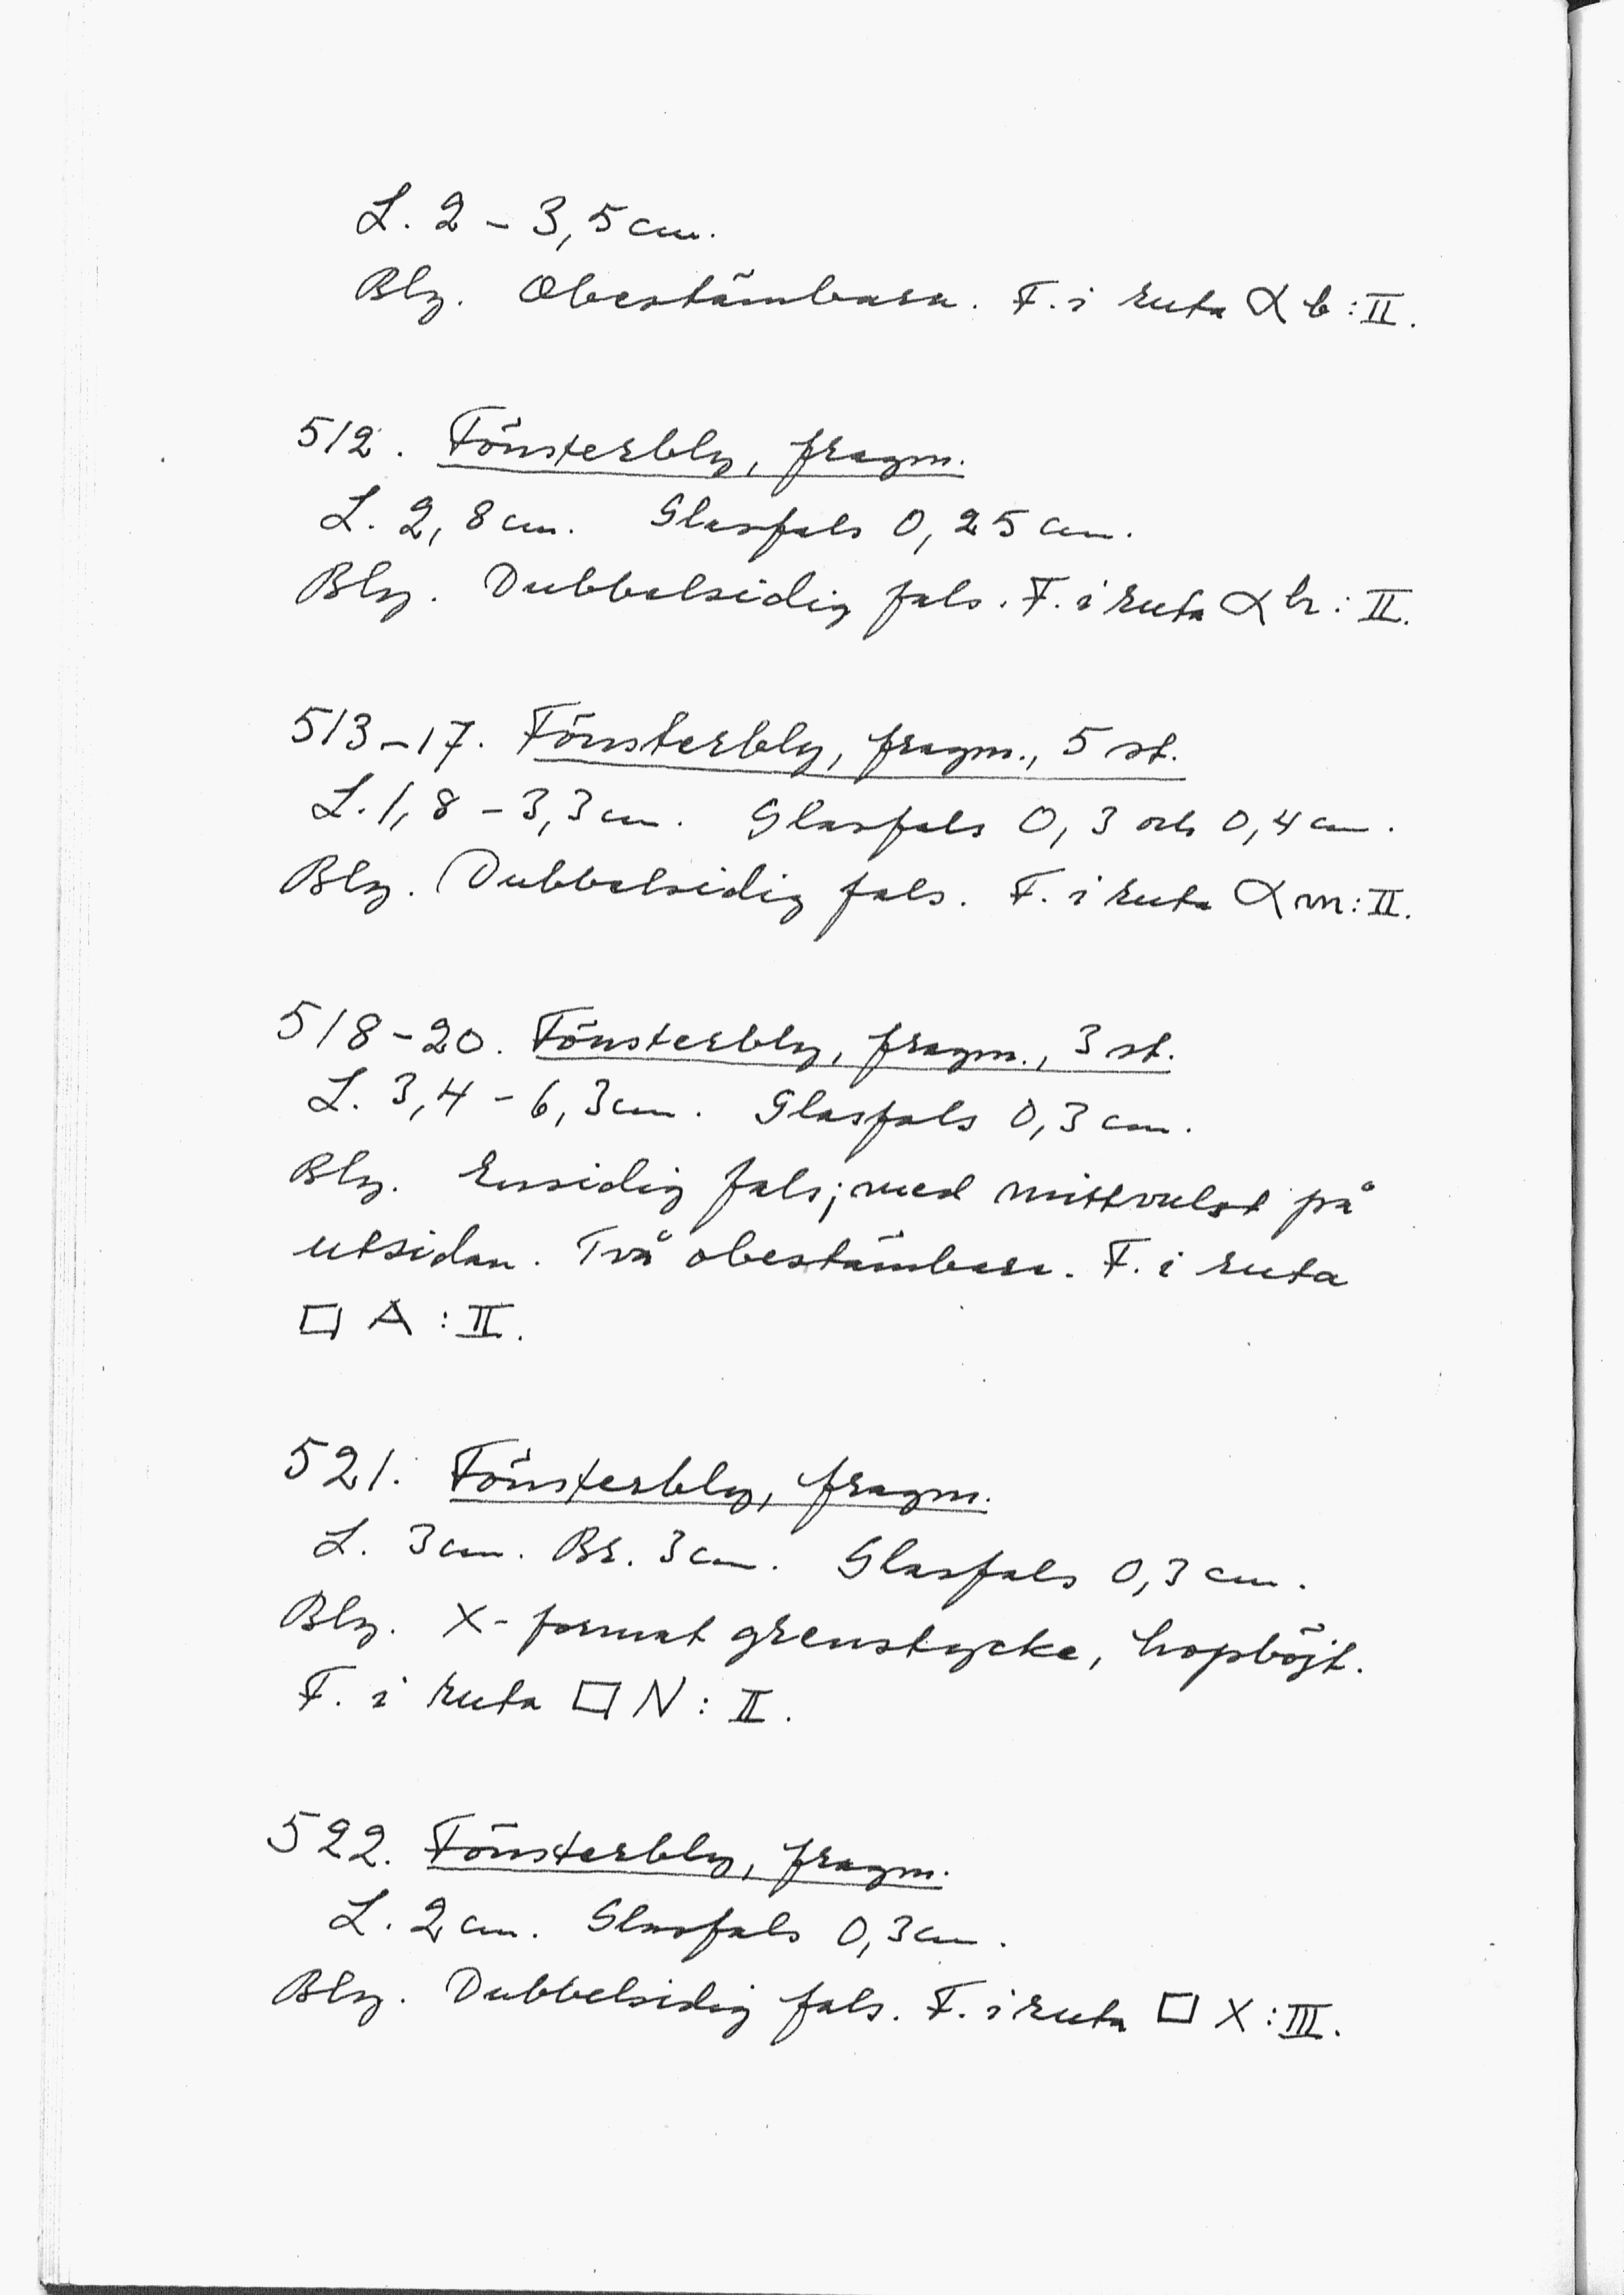 L. 2 - 3,5 cm.
Bly. Obestämbara. F. i ruta α b : II.
512. Fönsterbly, fragm.
L. 2,8 cm. Glasfals 0,25 cm.
Bly. Dubbelsidig fals. F. i ruta α h : II.
513-17. Fönsterbly, fragm., 5 st.
L. 1,8 - 3,3 cm. Glasfals 0,3 och 0,4 cm.
Bly. Dubbelsidig fals. F. i ruta α m : II.
518-20. Fönsterbly, fragm., 3 st.
L. 3,4 - 6,3 cm. Glasfals 0,3 cm.
Bly. Ensidig fals; med mittvulst på
utsidan. Två obestämbara. F. i ruta
□ A : II.
521. Fönsterbly, fragm.
L. 3 cm. Br. 3 cm. Glasfals 0,3 cm.
Bly. X-format grenstycke, hopböjt.
F. i ruta □ N : II.
522. Fönsterbly, fragm.
L. 2 cm. Glasfals 0,3 cm.
Bly. Dubbelsidig fals. F. i ruta □ X : III.